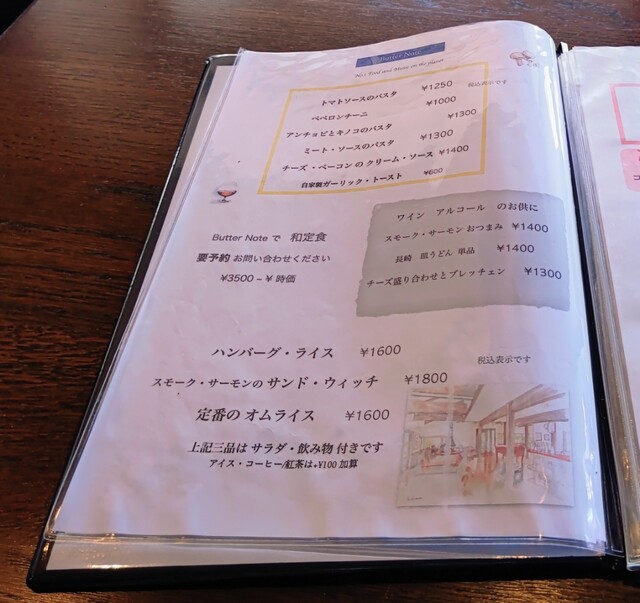 Butter Note
Best Food and Music on the planet
トマトソースのパスタ ¥1250 税込表示です
ペペロンチーニ ¥1000
アンチョビとキノコのパスタ ¥1300
ミート・ソースのパスタ ¥1300
チーズ・ベーコン の クリーム・ソース ¥1400
自家製ガーリック・トースト ¥600
ワイン アルコール のお供に
スモーク・サーモン おつまみ ¥1400
長崎 皿うどん 単品 ¥1400
チーズ盛り合わせとブレッチェン ¥1300
Butter Note で 和定食
要予約 お問い合わせください
¥3500 – ¥ 時価
ハンバーグ・ライス ¥1600
税込表示です
スモーク・サーモンの サンド・ウィッチ ¥1800
定番の オムライス ¥1600
上記三品は サラダ・飲み物 付きです
アイス・コーヒー/紅茶は+¥100 加算